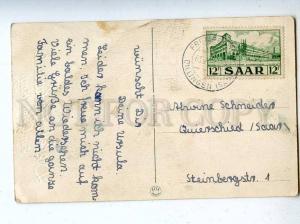 wünscht Dir
Deine Ursula
Leider kann ich nicht kom-
men. Ich freue mich auf
ein baldes Wiedersehen.
Viele Grüsse an die ganze
Familie von allen.
12F SAAR 12F
Schneider
Quierschied / Saar
Steinbergstr. 1